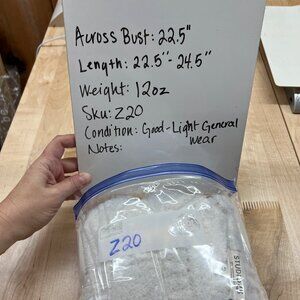 Across Bust: 22.5"
Length: 22.5" - 24.5"
Weight: 12oz
Sku: Z20
Condition: Good - Light General
Wear
Notes:
Z20